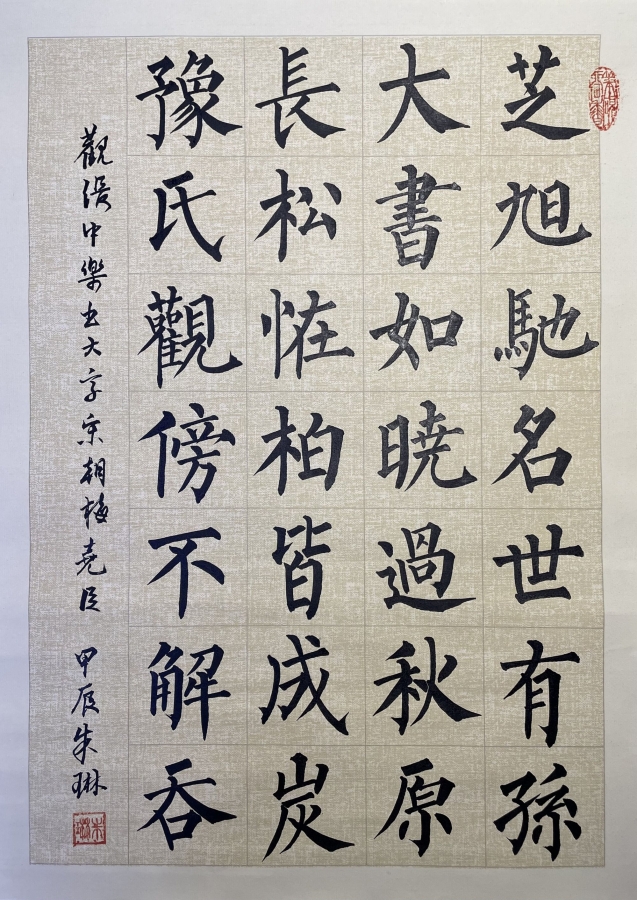 芝旭馳名世有孫
大書如曉過秋原
長松恠柏皆成炭
豫氏觀傍不解吞
觀張中樂書大字宋朝梅堯臣 甲辰朱琳